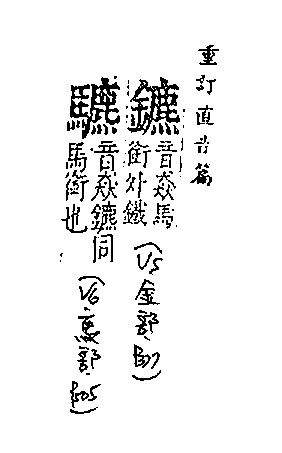 重訂直音篇
鑣
音猋馬
銜外鐵
(V5 金部.
音猋鑣同
馬銜也
(V6.馬部.